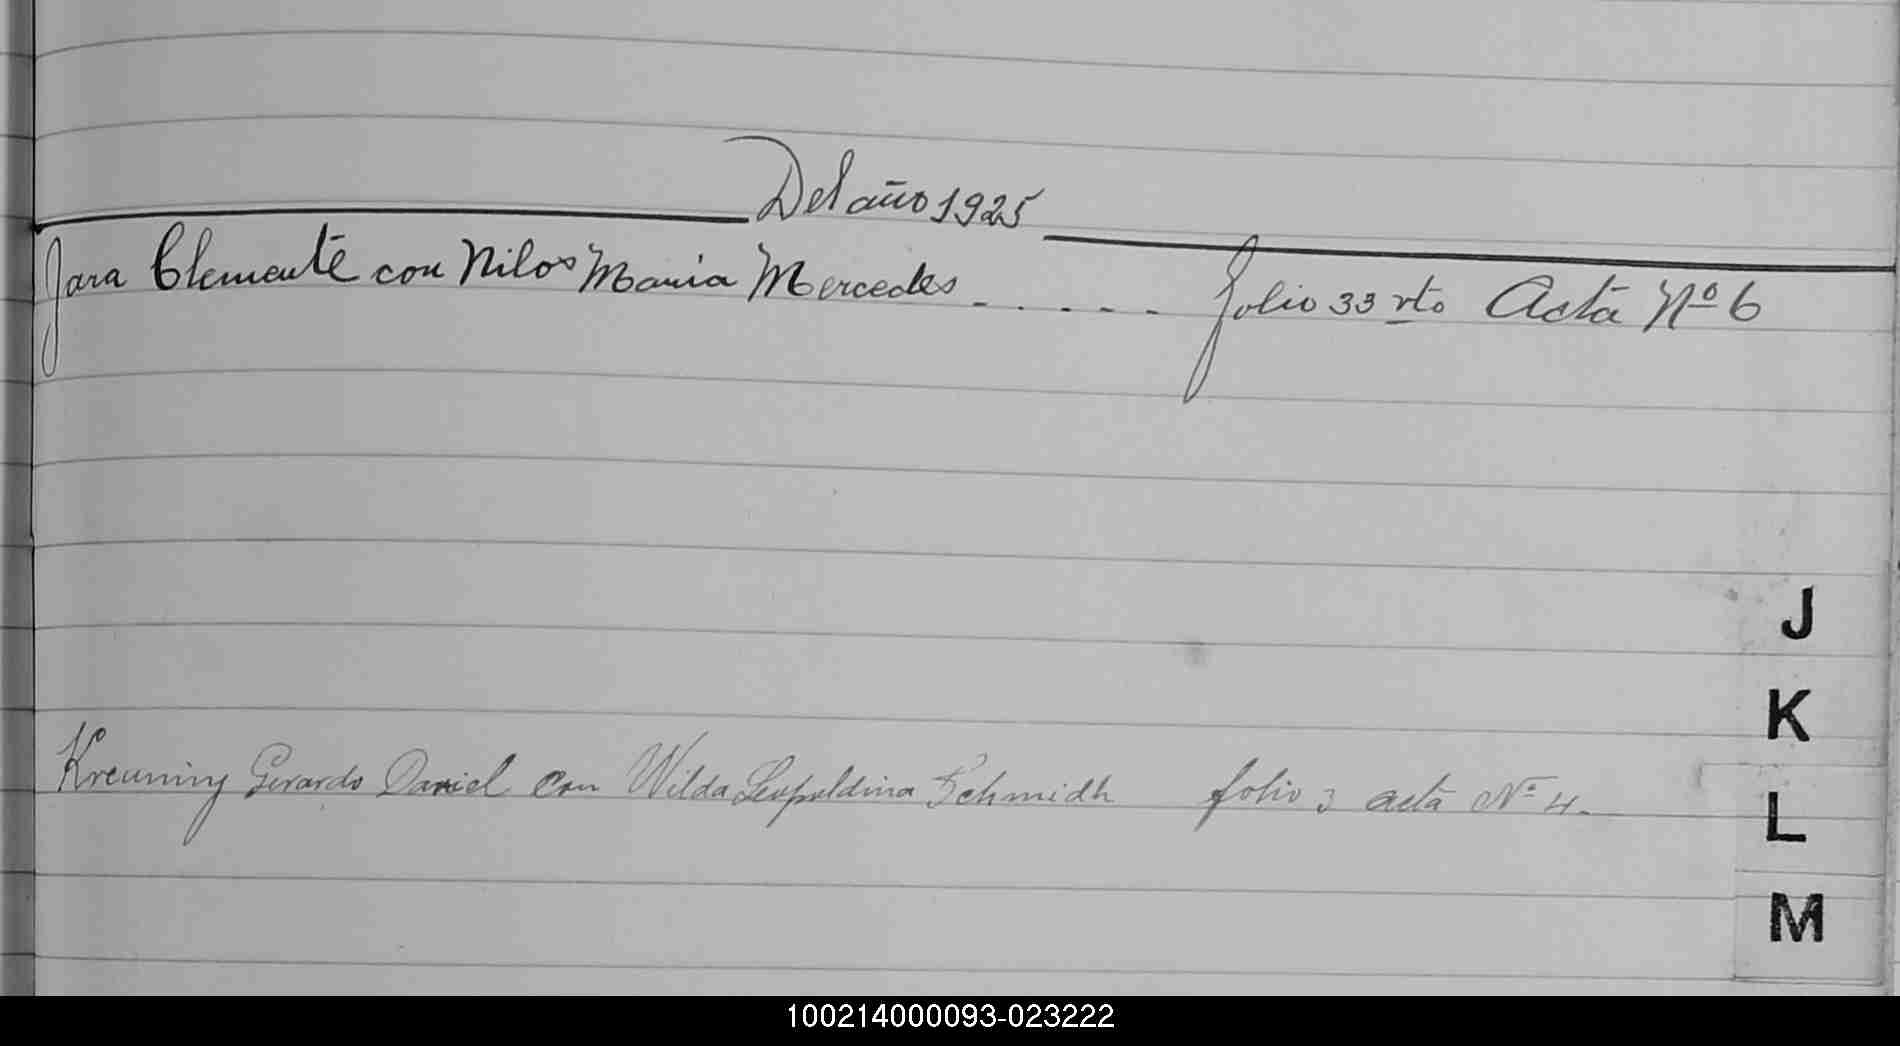 Del año 1925
Jara Clemente con Nilos Maria Mercedes - - - - - folio 33 vto Acta Nº 6
J
K
Kreuning Gerardo Daniel con Wilda Leopoldina Schmidh folio 3 acta Nº 4.-
L
M
100214000093-023222